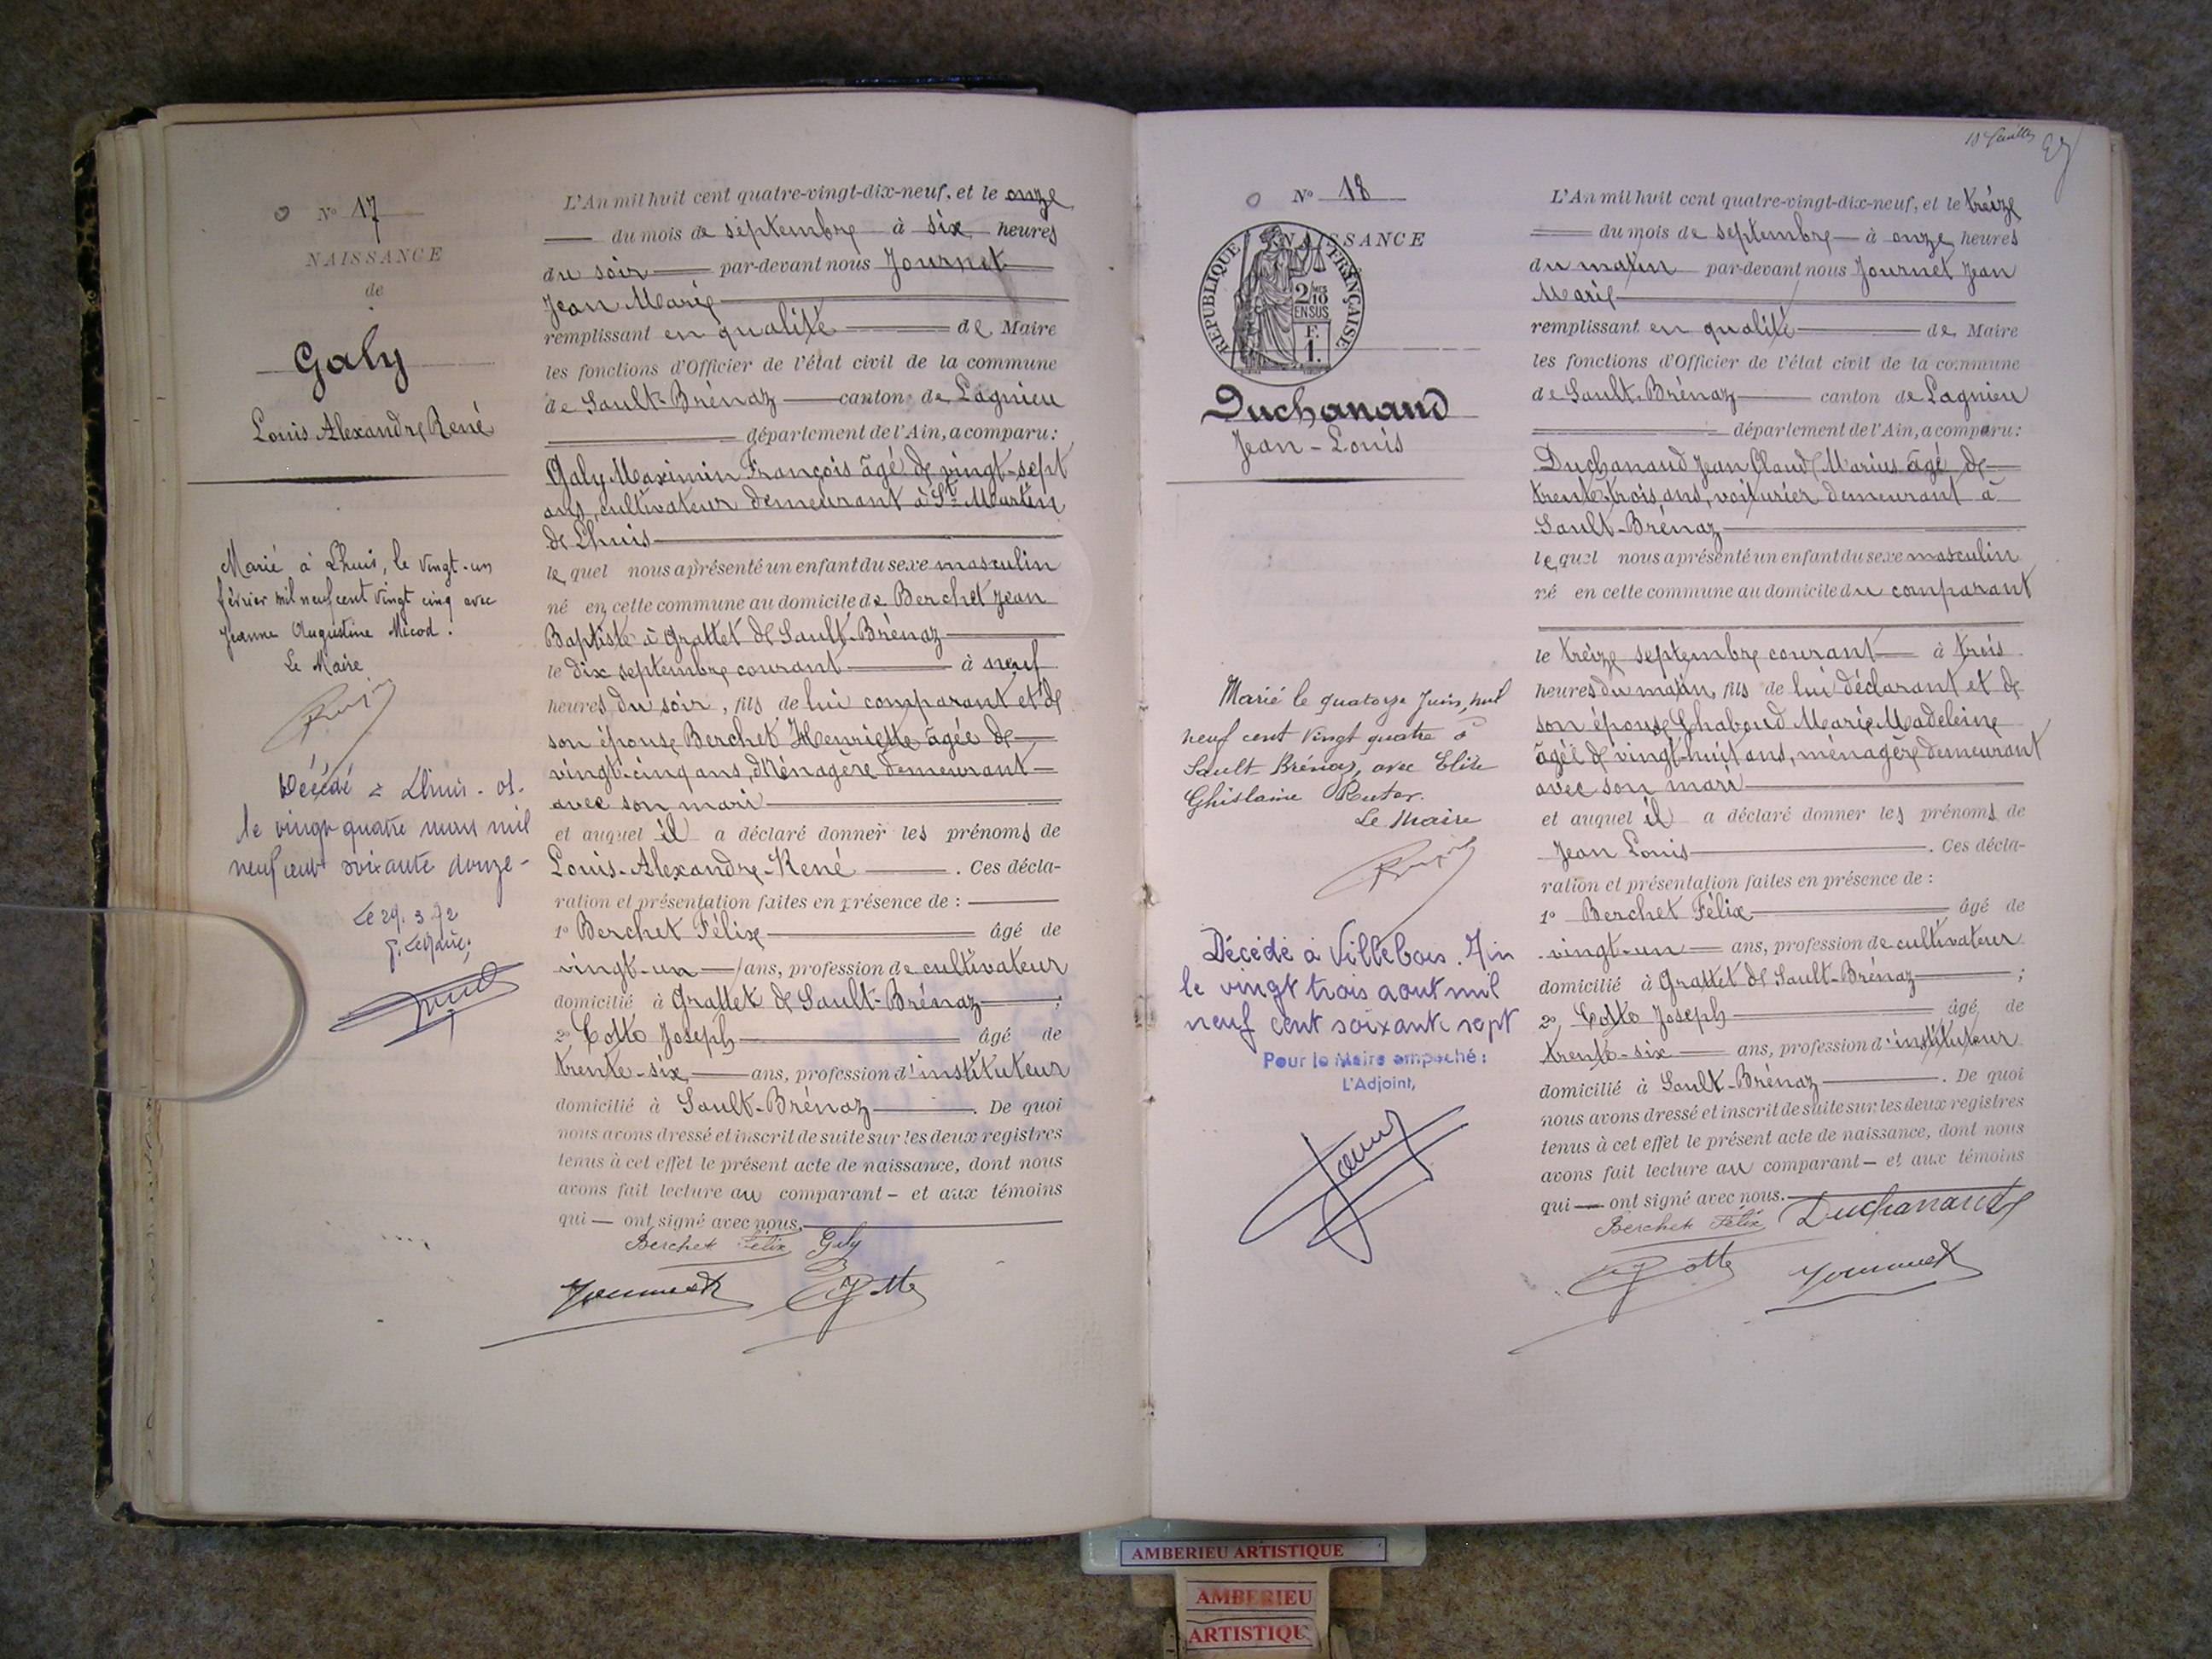 N° 17
NAISSANCE
de
Galy
Louis Alexandre René
Marié à Lhuis, le vingt-un
février mil neuf cent vingt cinq avec
Jeanne Augustine Micod.
Le Maire
Décédé à Lhuis - 01-
le vingt quatre mars mil
neuf cent soixante douze -
Le 29. 3. 72
L'An mil huit cent quatre-vingt-dix-neuf, et le onze
du mois de septembre à six heures
du soir par-devant nous Journet
Jean Marie
remplissant en qualité de Maire
les fonctions d'Officier de l'état civil de la commune
de Sault-Brénaz canton de Lagnieu
département de l'Ain, a comparu:
Galy Maximin François âgé de vingt-sept
ans, cultivateur demeurant à St Martin
de Lhuis
lequel nous a présenté un enfant du sexe masculin
né en cette commune au domicile de Berchet Jean
Baptiste à Grattet de Sault-Brénaz
le dix septembre courant à neuf
heures du soir, fils de lui comparant et de
son épouse Berchet Henriette âgée de
vingt-cinq ans, Ménagère demeurant
avec son mari
et auquel il a déclaré donner les prénoms de
Louis-Alexandre-René. Ces décla-
ration et présentation faites en présence de :
1° Berchet Félix âgé de
vingt-un ans, profession de cultivateur
domicilié à Grattet de Sault-Brénaz ;
2° Cotto Joseph âgé de
trente-six ans, profession d'instituteur
domicilié à Sault-Brénaz. De quoi
nous avons dressé et inscrit de suite sur les deux registres
tenus à cet effet le présent acte de naissance, dont nous
avons fait lecture au comparant - et aux témoins
qui — ont signé avec nous.
Berchet Félix Galy
Journet Cotto
18e feuillet
N° 18
NAISSANCE
RÉPUBLIQUE FRANÇAISE
2/10
EN SUS
F.
1.
Duchanaud
Jean-Louis
Marié le quatorze Juin mil
neuf cent vingt quatre à
Sault-Brénaz, avec Elise
Ghislaine Ruter.
Le Maire
Décédé à Villebois. Ain
le vingt trois aout mil
neuf cent soixante sept
Pour le Maire empêché :
L'Adjoint,
L'An mil huit cent quatre-vingt-dix-neuf, et le treize
du mois de septembre à onze heures
du matin par-devant nous Journet Jean
Marie
remplissant en qualité de Maire
les fonctions d'Officier de l'état civil de la commune
de Sault-Brénaz canton de Lagnieu
département de l'Ain, a comparu:
Duchanaud Jean Claude Marius âgé de
trente-trois ans, voiturier demeurant à
Sault-Brénaz
lequel nous a présenté un enfant du sexe masculin
né en cette commune au domicile du comparant
le treize septembre courant à trois
heures du matin, fils de lui déclarant et de
son épouse Chaboud Marie Madeleine
âgée de vingt-huit ans, ménagère demeurant
avec son mari
et auquel il a déclaré donner les prénoms de
Jean Louis. Ces décla-
ration et présentation faites en présence de :
1° Berchet Félix âgé de
vingt-un ans, profession de cultivateur
domicilié à Grattet de Sault-Brénaz ;
2° Cotto Joseph âgé de
trente-six ans, profession d'instituteur
domicilié à Sault-Brénaz. De quoi
nous avons dressé et inscrit de suite sur les deux registres
tenus à cet effet le présent acte de naissance, dont nous
avons fait lecture au comparant - et aux témoins
qui — ont signé avec nous.
Berchet Félix Duchanaud
Cotto Journet
AMBERIEU ARTISTIQUE
AMBERIEU
ARTISTIQUE